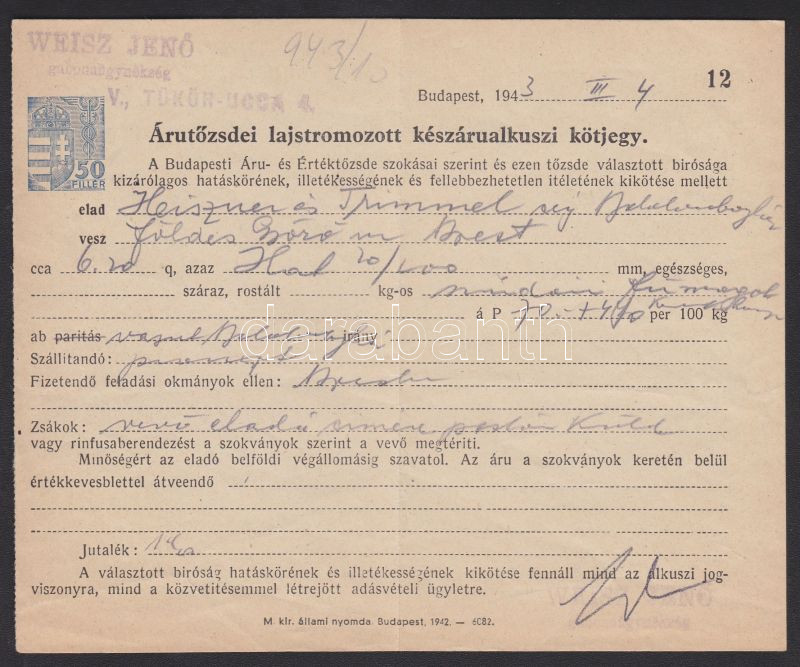 WEISZ JENŐ
gabonaügynökség
V., TÜKÖR-UCCA 4.
943/10
12
Budapest, 1943 III 4
50
FILLÉR
Árutőzsdei lajstromozott készárualkuszi kötjegy.
A Budapesti Áru- és Értéktőzsde szokásai szerint és ezen tőzsde választott birósága
kizárólagos hatáskörének, illetékességének és fellebbezhetetlen itéletének kikötése mellett
elad Heiszner és Trimmel
vesz Földes Brest
cca 6.20 q, azaz Hat 20/100 mm, egészséges,
száraz, rostált kg-os
á P 70.- per 100 kg
ab paritás irány
Szállitandó:
Fizetendő feladási okmányok ellen:
Zsákok: vevő eladó címére postán küld
vagy rinfusaberendezést a szokványok szerint a vevő megtériti.
Minőségért az eladó belföldi végállomásig szavatol. Az áru a szokványok keretén belül
értékkevesblettel átveendő
Jutalék:
A választott biróság hatáskörének és illetékességének kikötése fennáll mind az alkuszi jog-
viszonyra, mind a közvetitésemmel létrejött adásvételi ügyletre.
WEISZ JENŐ
gabonaügynökség
M. kir. állami nyomda. Budapest, 1942. — 6082.
darabanth